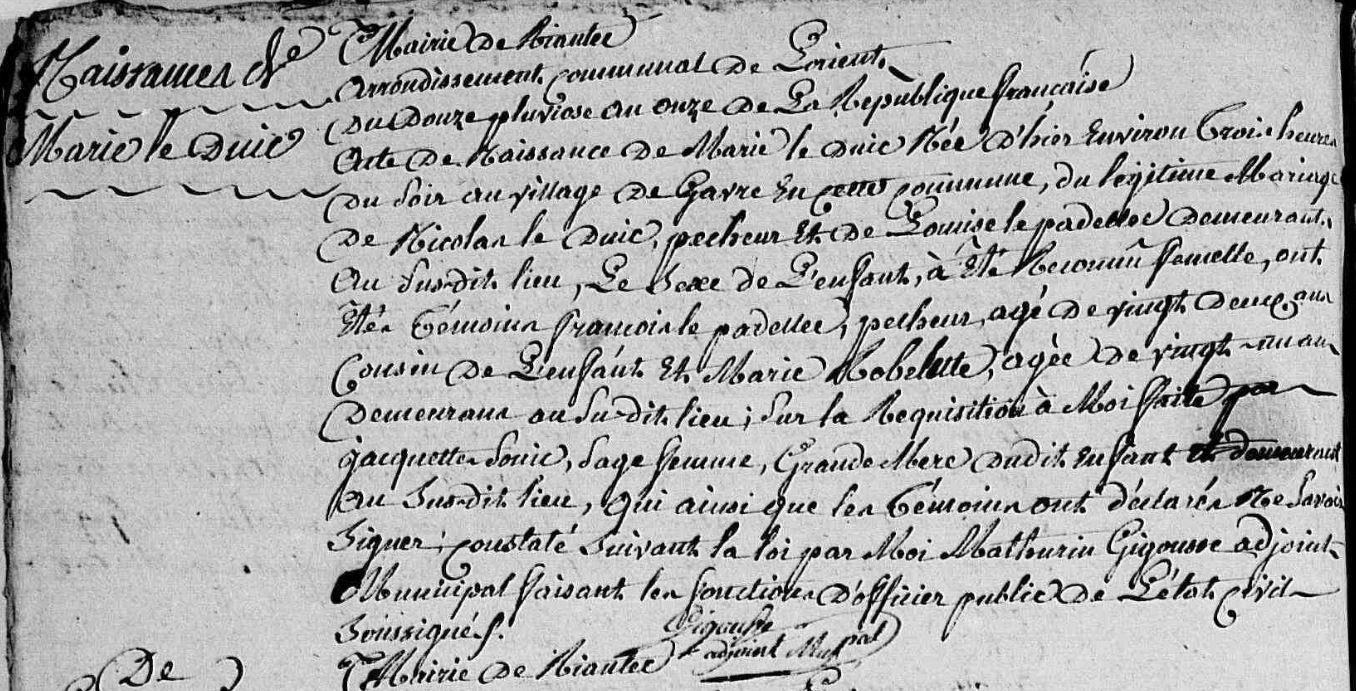 Naissances de
Marie le Duic
Mairie de Riantec
Arrondissement communal de Lorient.
Du Douze pluviose an onze de La République française
Acte de Naissance de Marie le Duic Née d'hier Environ Trois heures
du soir au village de Gavre En cette commune, du légitime Mariage
de Nicolas le Duic, pecheur Et de Louise le padellec demeurants
au Sus-dit lieu, Le Sexe de L'enfant, à Eté Reconnû femelle, ont
Etés Témoins francois le padellec, pecheur, agé de vingt deux ans
Cousin de L'enfant Et Marie Kobelette, agée de vingt-un an
Demeurans au Su-dit lieu; Sur la Requisition à Moi faite par
jacquette Souic, Sage femme, Grande Mere dudit Enfant et demeurant
au Sus-dit lieu, qui ainsi que les Témoins ont déclarés Ne Savoir
Signer; constaté Suivant la loi par Moi Mathurin Gigousse adjoint
Municipal faisant les fonctions d'officier public de L'état civil
Soussignés.
Gigousse
adjoint Mupal
De
Mairie de Riantec